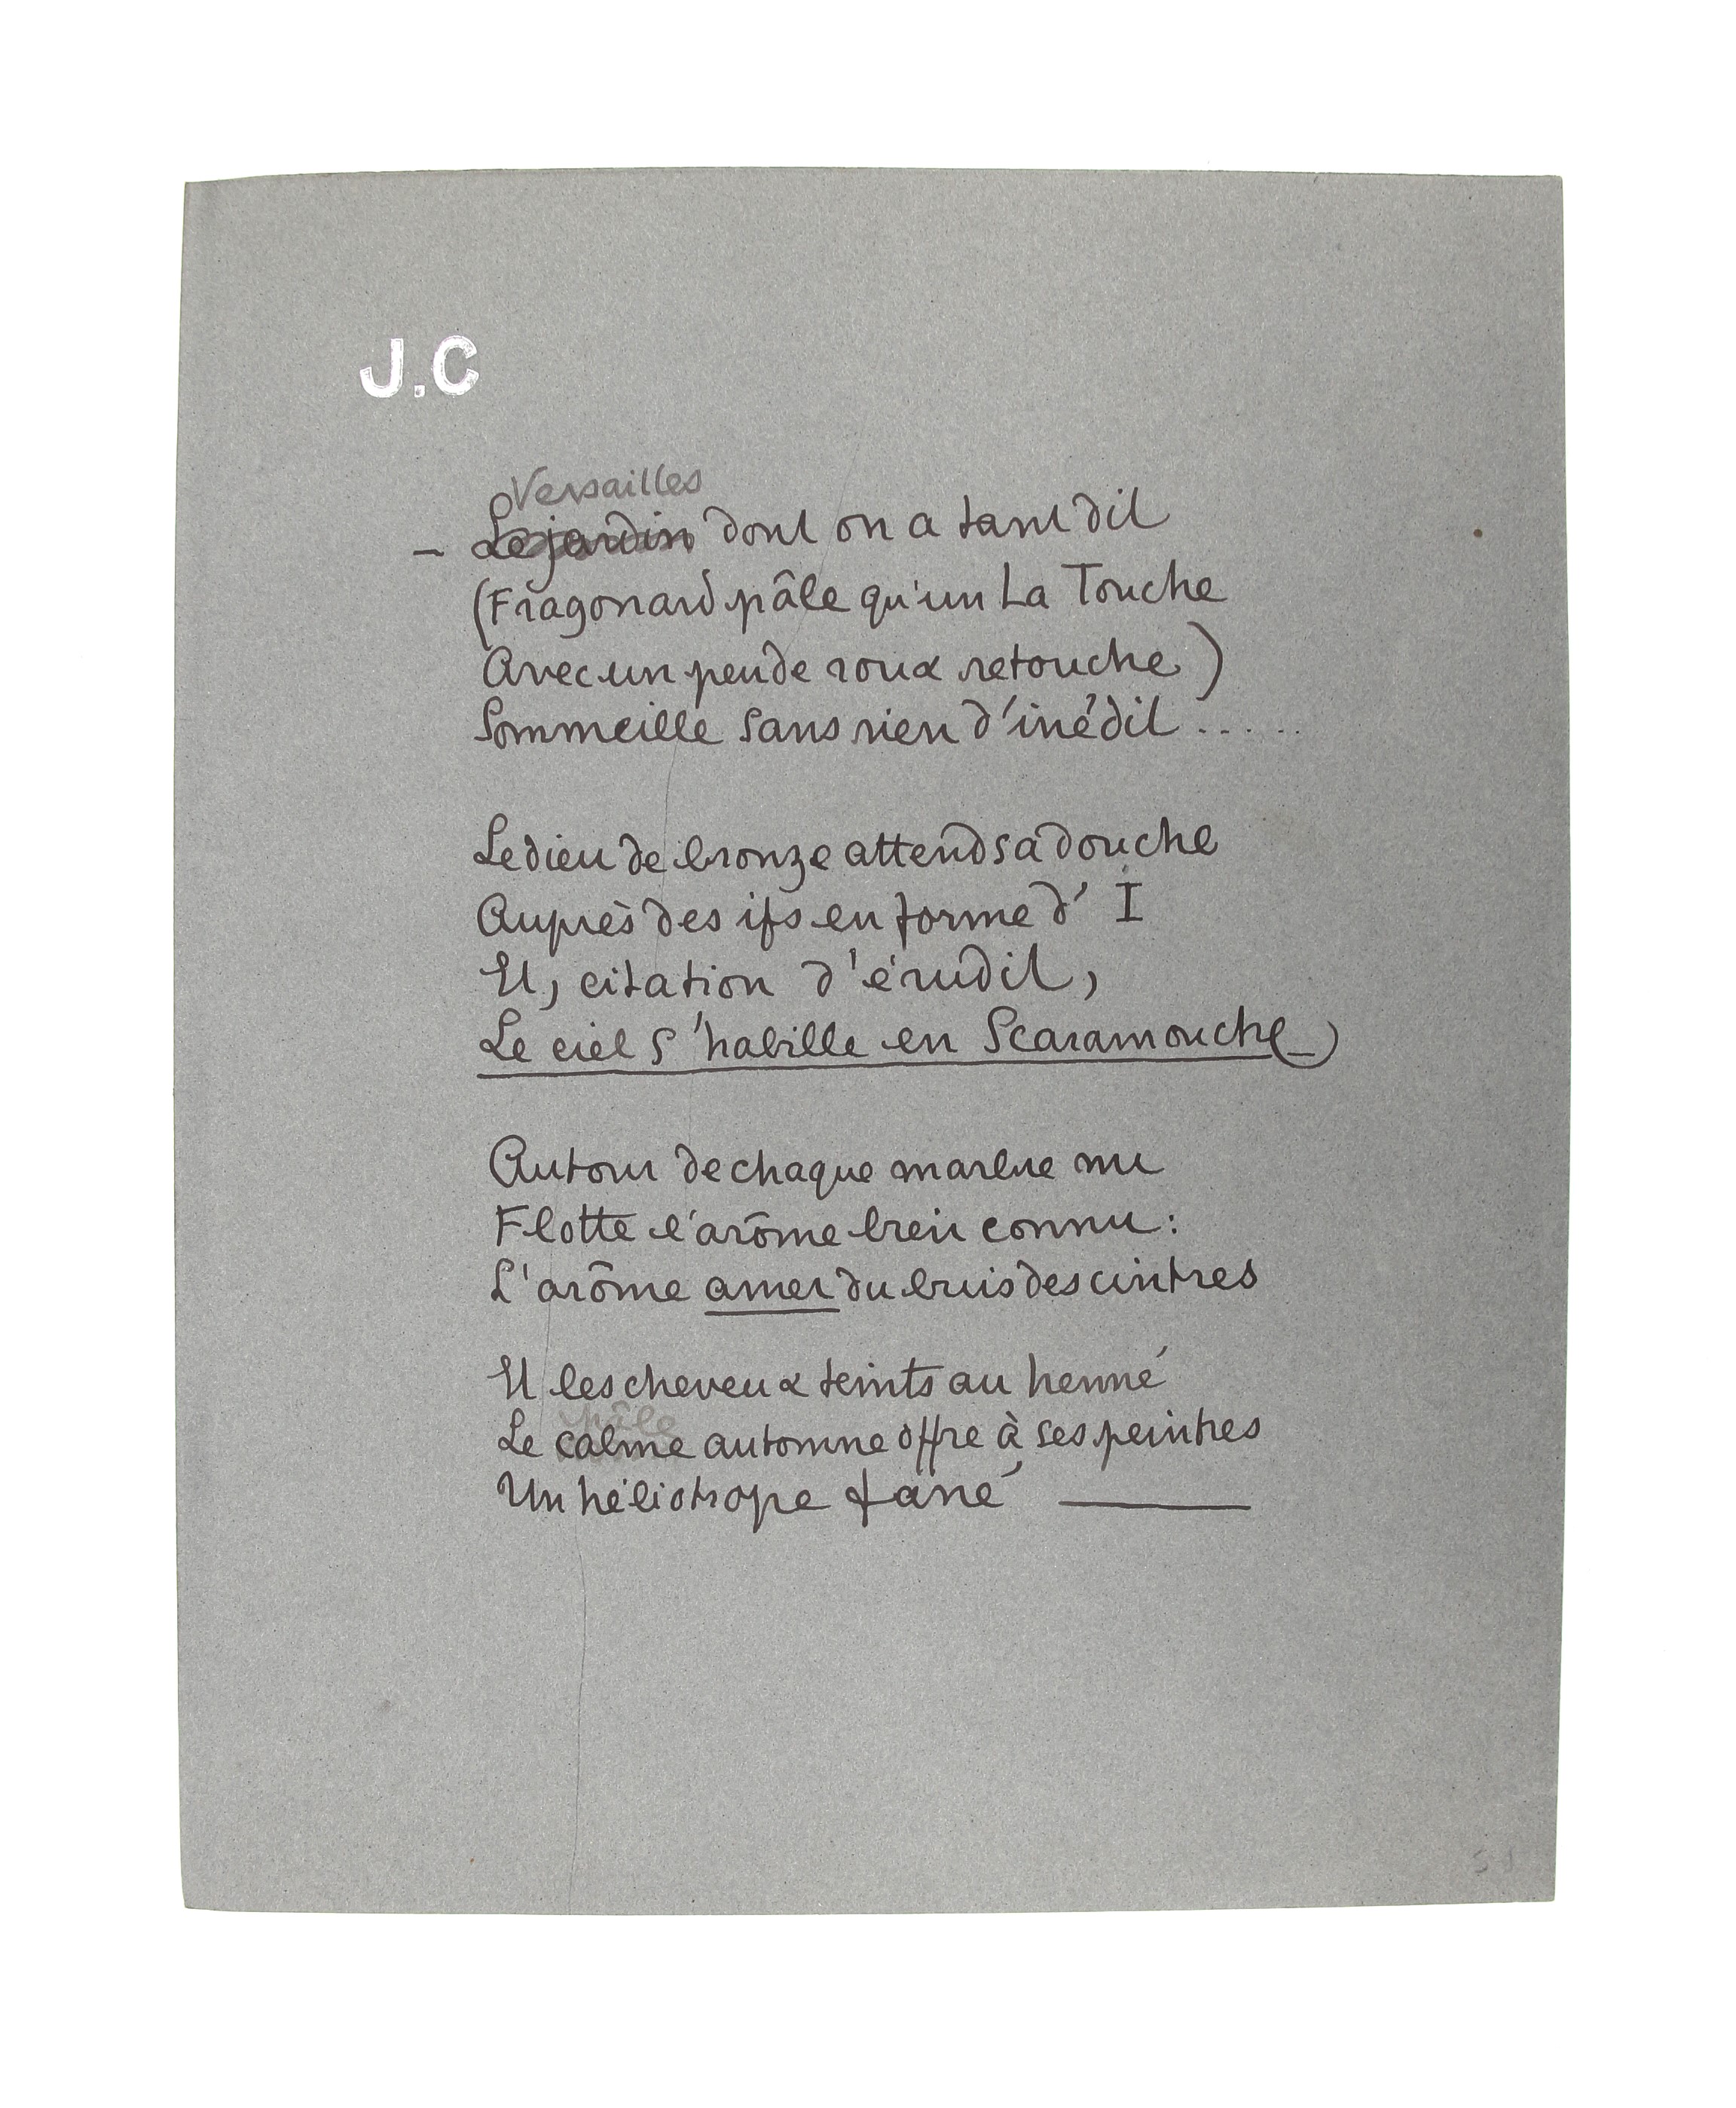 J.C
Versailles
– Le jardin dont on a tant dit
(Fragonard pâle qu'un La Touche
Avec un peu de roux retouche)
Sommeille sans rien d'inédit .....
Le dieu de bronze attend sa douche
Auprès des ifs en forme d' I
Et, citation d'érudit,
Le ciel s'habille en Scaramouche
Autour de chaque marbre nu
Flotte l'arôme bien connu :
L'arôme amer du buis des cintres
Et les cheveux teints au henné
pâle
Le calme automne offre à ses peintres
Un héliotrope fané ———